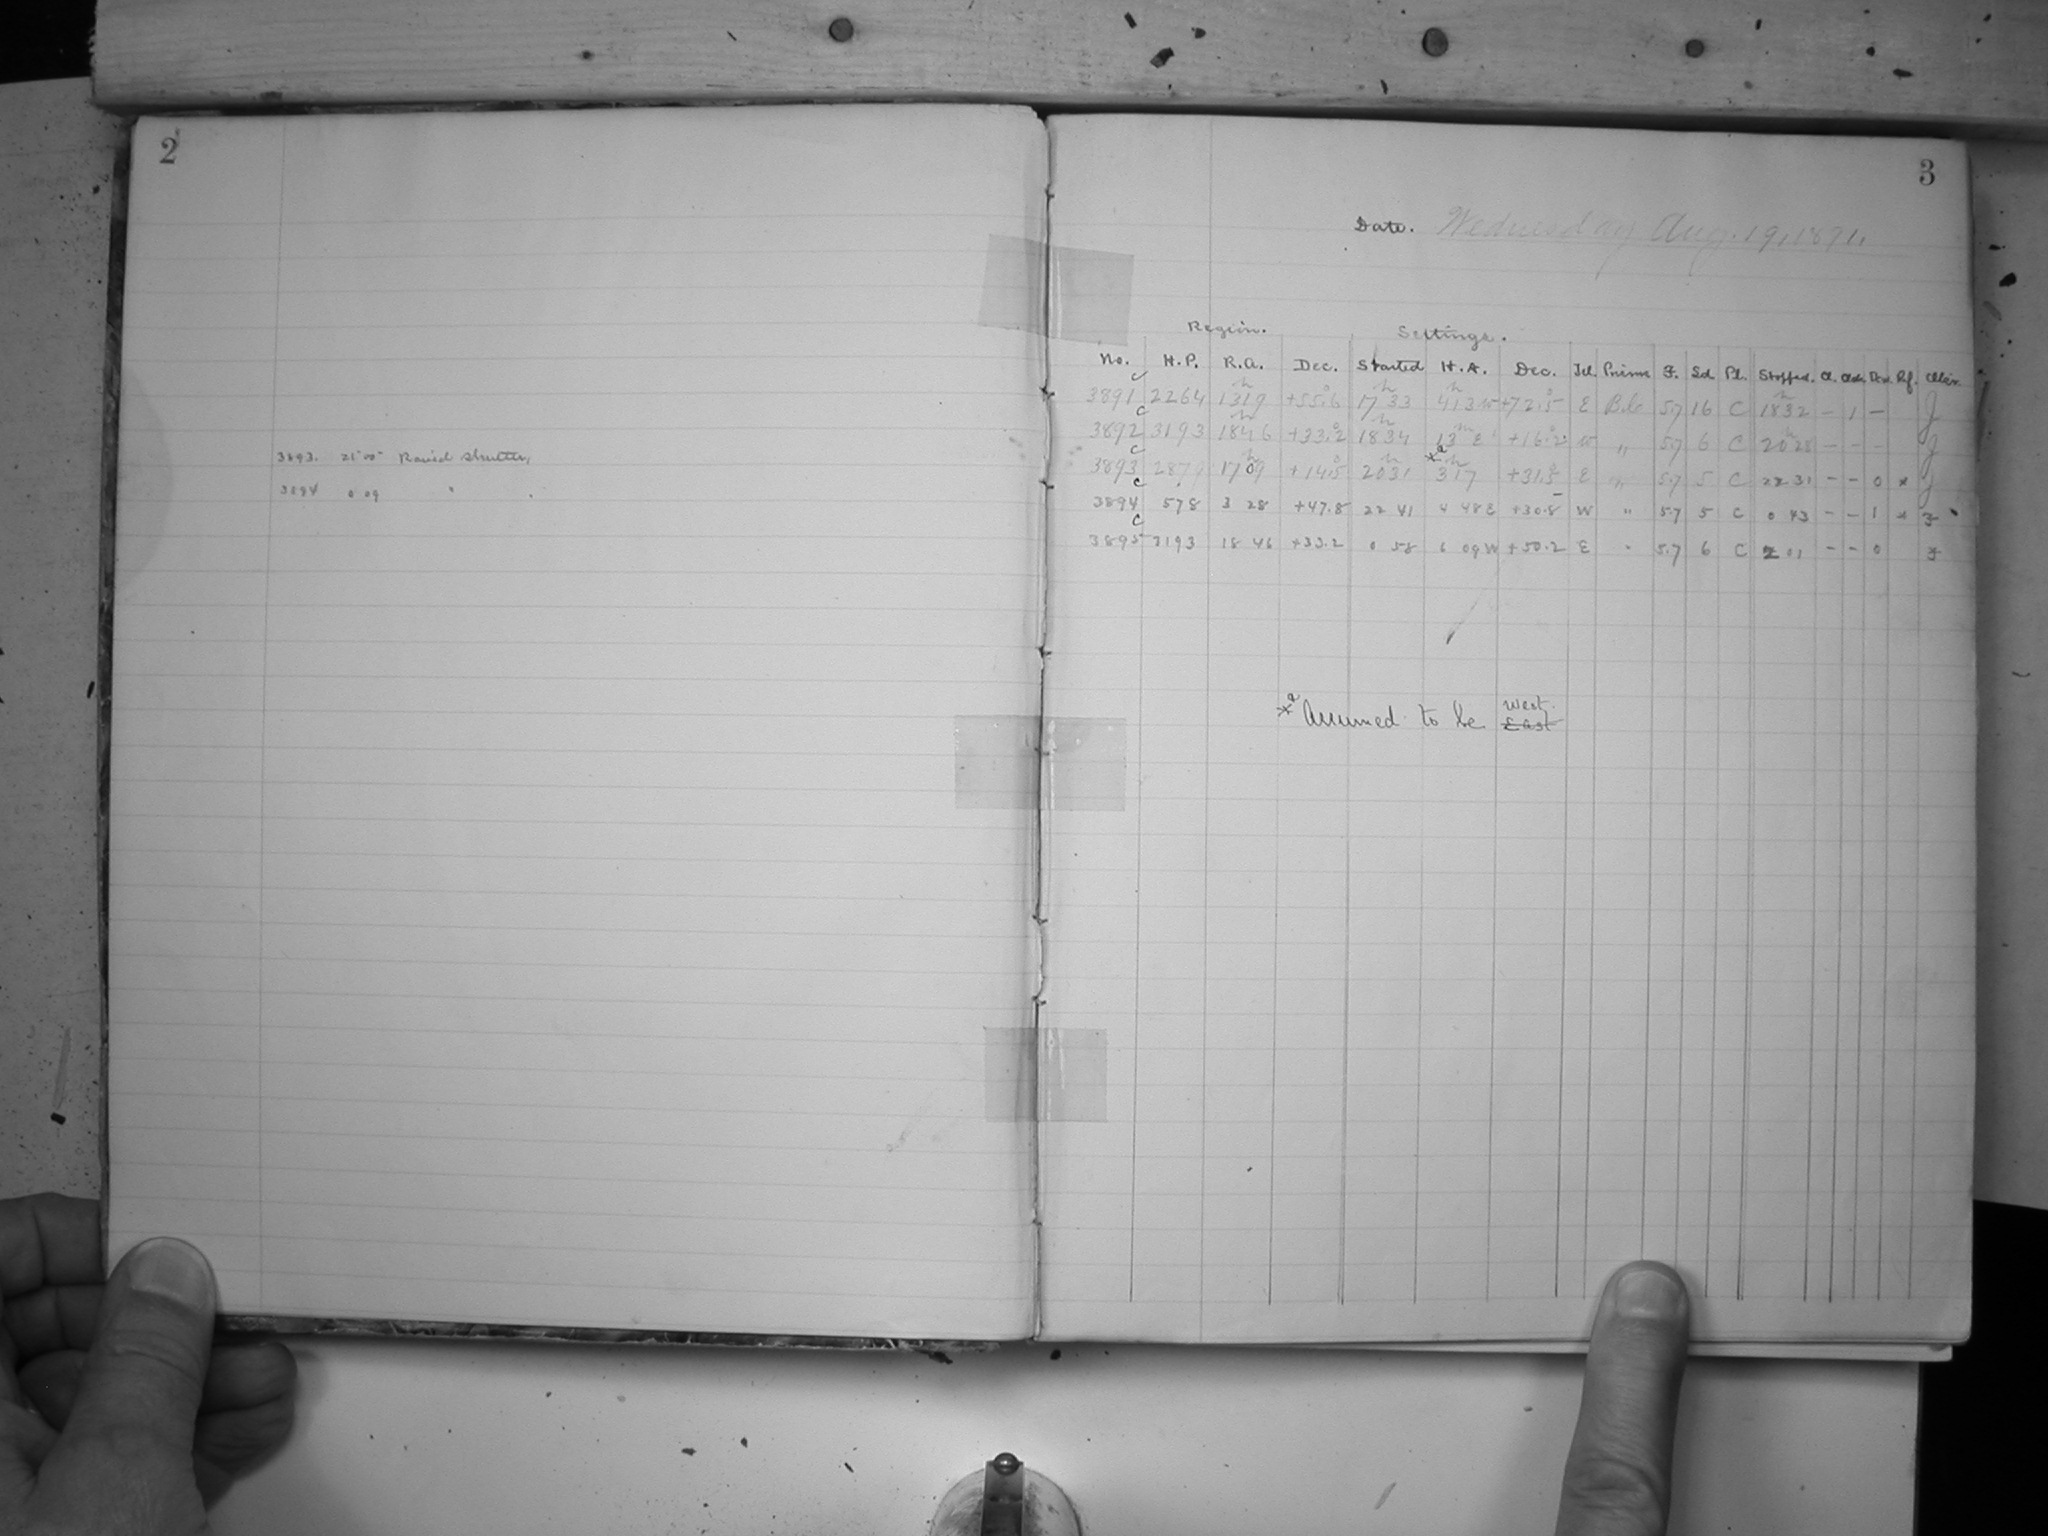 2
3893. 21 00 Raised shutter,
3894 0 09 " "
3
Date. Wednesday Aug. 19, 1891.
Region. Settings.
No. H.P. R.A. Dec. Started H.A. Dec. Tel. Prism F. Sd Pl. Stopped. Cl. Rf.
3891 c 2264 13h19 +55°.6 17h33 4h13 W +72°.5 E B.6 5.7 16 C 18h32 – 1 – J
3892 c 3193 18h46 +33°.2 18h34 13m E +16°.2 W " 5.7 6 C 20h28 – – – J
3893 c 2879 17h09 +14°.5 20h31 *a 3h17 +31°.5 E " 5.7 5 C 22 31 – – 0 * J
3894 c 578 3 28 +47.8 22 41 4 48 E +30.8 W " 5.7 5 C 0 43 – – 1 * F
3895 c 3193 18 46 +33.2 0 58 6 09 W +50.2 E " 5.7 6 C 2 01 – – 0 F
*a Assumed to be West. East